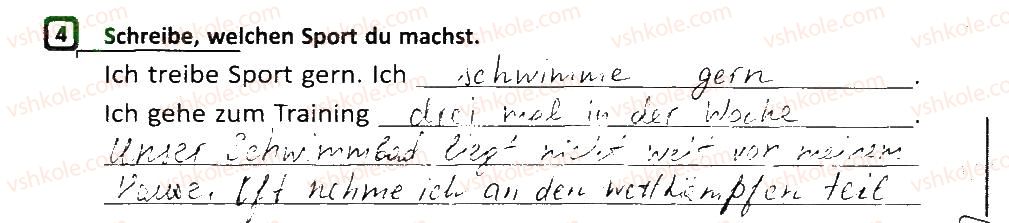 4 Schreibe, welchen Sport du machst.
Ich treibe Sport gern. Ich schwimme gern.
Ich gehe zum Training drei mal in der Woche.
Unser Schwimmbad liegt nicht weit vor meinem
Hause. Oft nehme ich an den wettkämpfen teil